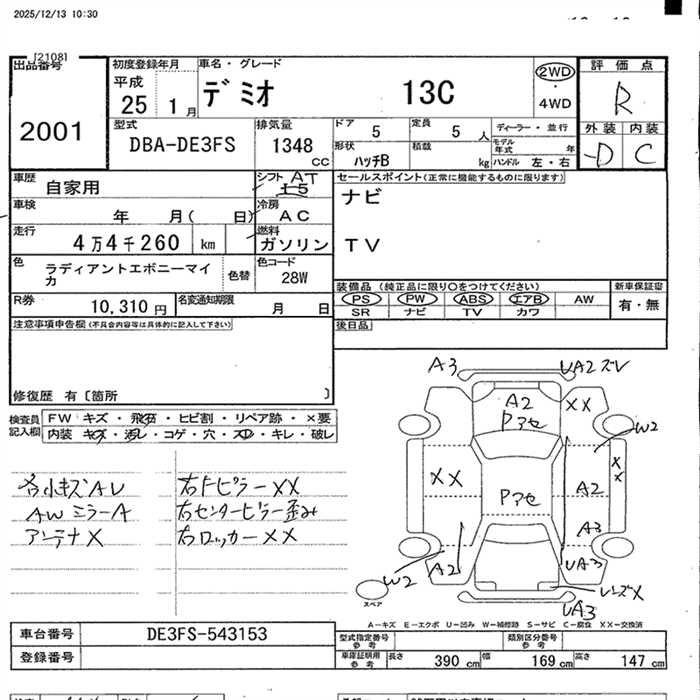 2025/12/13 10:30
[2108]
出品番号
2001
初度登録年月
平成
25 1月
車名・グレード
デミオ 13C
2WD
・
4WD
評価点
R
外装 内装
D C
型式
DBA-DE3FS
排気量
1348 cc
ドア 5
形状 ハッチB
定員 5 人
積載 kg
ディーラー・並行
モデル年式 年
ハンドル 左・右
車歴 自家用
シフト AT
車検 年 月( 日)
冷房 AC
走行 4万4千260 km
燃料 ガソリン
色 ラディアントエボニーマイカ
色替
色コード 28W
R券 10,310 円
名変通知期限 月 日
セールスポイント(正常に機能するものに限ります)
ナビ
TV
装備品 (純正品に限り○をつけてください)
PS PW ABS エアB AW
SR ナビ TV カワ
新車保証書
有・無
後日品
注意事項申告欄(不具合内容等は具体的に記入して下さい)
修復歴 有〔箇所 〕
検査員
記入欄
FW キズ・飛石・ヒビ割・リペア跡・×要
内装 キズ・汚レ・コゲ・穴・スレ・キレ・破レ
各小キズAU
AWミラーA
アンテナX
右Fピラー XX
右センターピラー歪み
右ロッカー XX
A3
UA2ズレ
A2
Pアセ
XX
W2
XX
XX
Pアセ
A2
A3
A2
W2
UA3
UA3
スペア
A-キズ E-エクボ U-凹み W-補修跡 S-サビ C-腐食 XX-交換済
車台番号 DE3FS-543153
登録番号
型式指定番号
参考
類別区分番号
参考
車庫証明用
参考
長さ 390 cm
幅 169 cm
高さ 147 cm